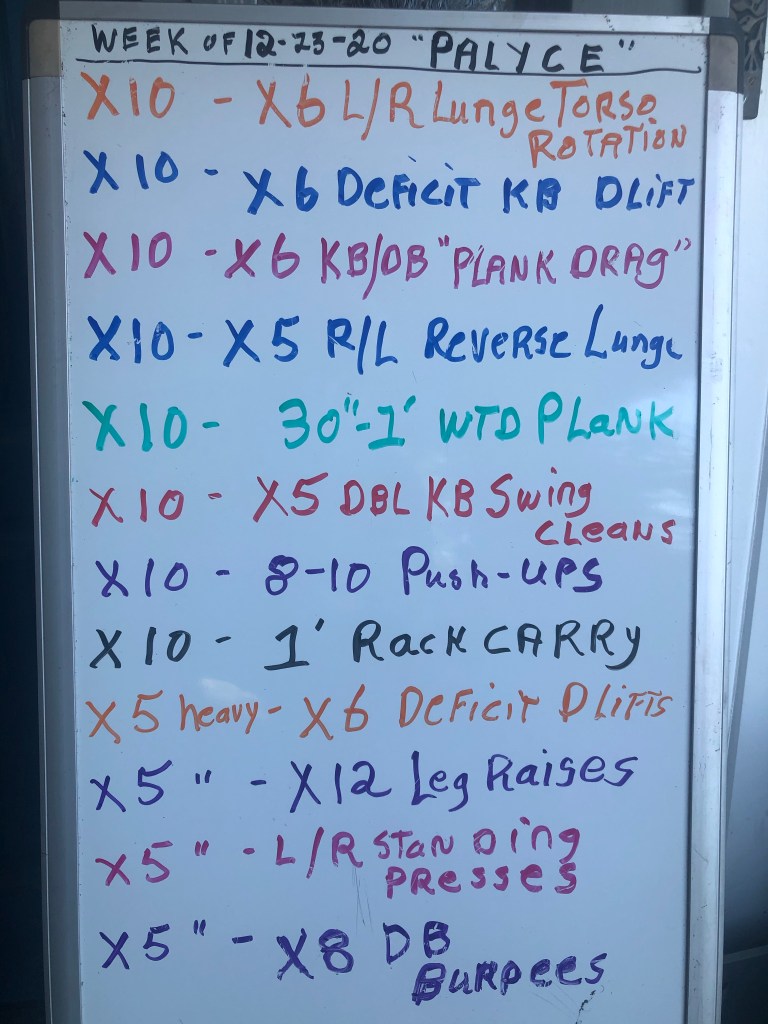 WEEK OF 12-23-20 "PALYCE"
X10 - X6 L/R Lunge TORSO
ROTATION
X10 - X6 DEFICIT KB DLIFT
X10 - X6 KB/DB "PLANK DRAg"
X10 - X5 R/L REVERSE Lunge
X10 - 30"-1' WTD PLANK
X10 - X5 DBL KB Swing
CLEANS
X10 - 8-10 Push-UPS
X10 - 1' RACK CARRY
X5 heavy - X6 DEFICIT DLIFTS
X5 " - X12 Leg Raises
X5 " - L/R STANDing
PRESSES
X5 " - X8 DB
BURPEES